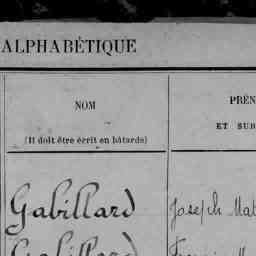 ALPHABÉTIQUE
NOM
(Il doit être écrit en bâtarde)
PRÉN
ET SUR
Gabillard
Joseph Mat
Gabillard